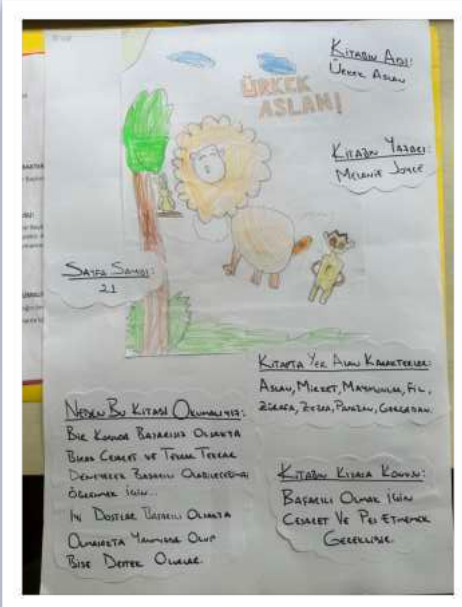 KİTABIN ADI:
ÜRKEK ASLAN
ÜRKEK
ASLAN!
KİTABIN YAZARI:
MELANIE JOYCE
SAYFA SAYISI:
21
KİTAPTA YER ALAN KARAKTERLER:
ASLAN, MİRKET, MAYMUNLAR, FİL,
ZÜRAFA, ZEBRA, GERGEDAN.
NEDEN BU KİTABI OKUMALIYIZ:
BİR KONUDA BAŞARISIZ OLSAKTA
BİRAZ CESARET VE TEKRAR TEKRAR
DENEYEREK BAŞARILI OLABİLECEĞİMİZİ
ÖĞRENMEK İÇİN...
İYİ DOSTLAR BAŞARILI OLSAKTA
OLMASAKTA YANIMIZDA OLUP
BİZE DESTEK OLURLAR.
KİTABIN KISACA KONUSU:
BAŞARILI OLMAK İÇİN
CESARET VE PES ETMEMEK
GEREKLİDİR.